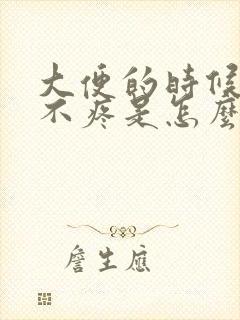 大便的時候
不疼是怎麼
詹生應